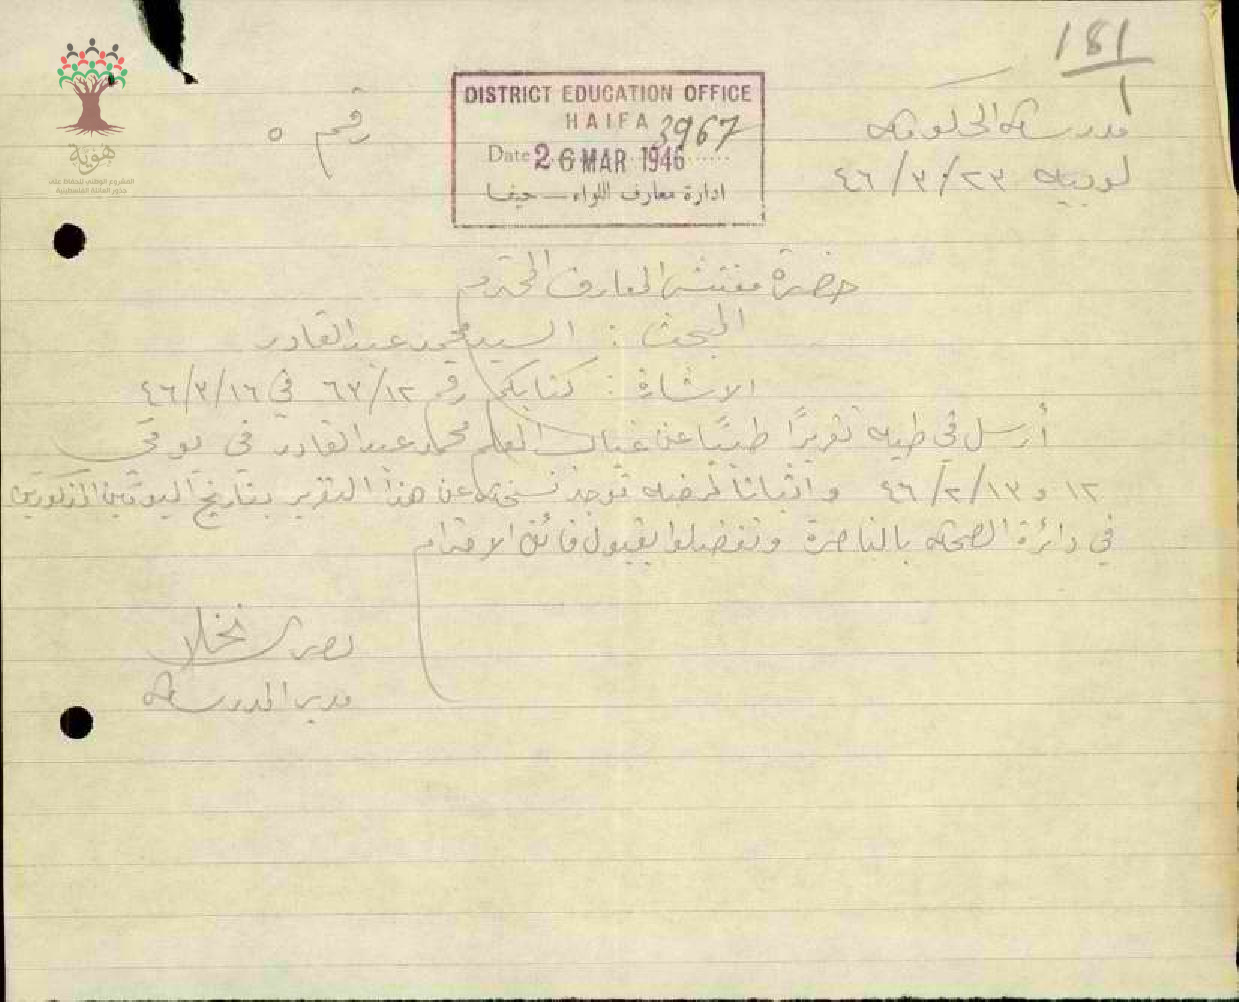 181
1
DISTRICT EDUCATION OFFICE
HAIFA
3967
Date 26 MAR 1946
ادارة معارف اللواء – حيفا
مدرسة الحكومة
لوبيه ٢٣/٣/٤٦
رقم ٥
هوية
المشروع الوطني للحفاظ على
جذور العائلة الفلسطينية
حضرة مفتش المعارف المحترم
المبحث : السيد محمد عبد القادر
الاشارة : كتابكم رقم ٦٣/١٢ في ٤٦/٣/١٦
أرسل في طيه تقريرًا طبيًا عن غياب المعلم محمد عبد القادر في يومي
١٢ و ٤٦/٢/١٣ واثباتا لمرضه توجد نسخة عن هذا التقرير بتاريخ اليومين المذكورين
في دائرة الصحة بالناصرة وتفضلوا بقبول فائق الاحترام
نخلا
مدير المدرسة